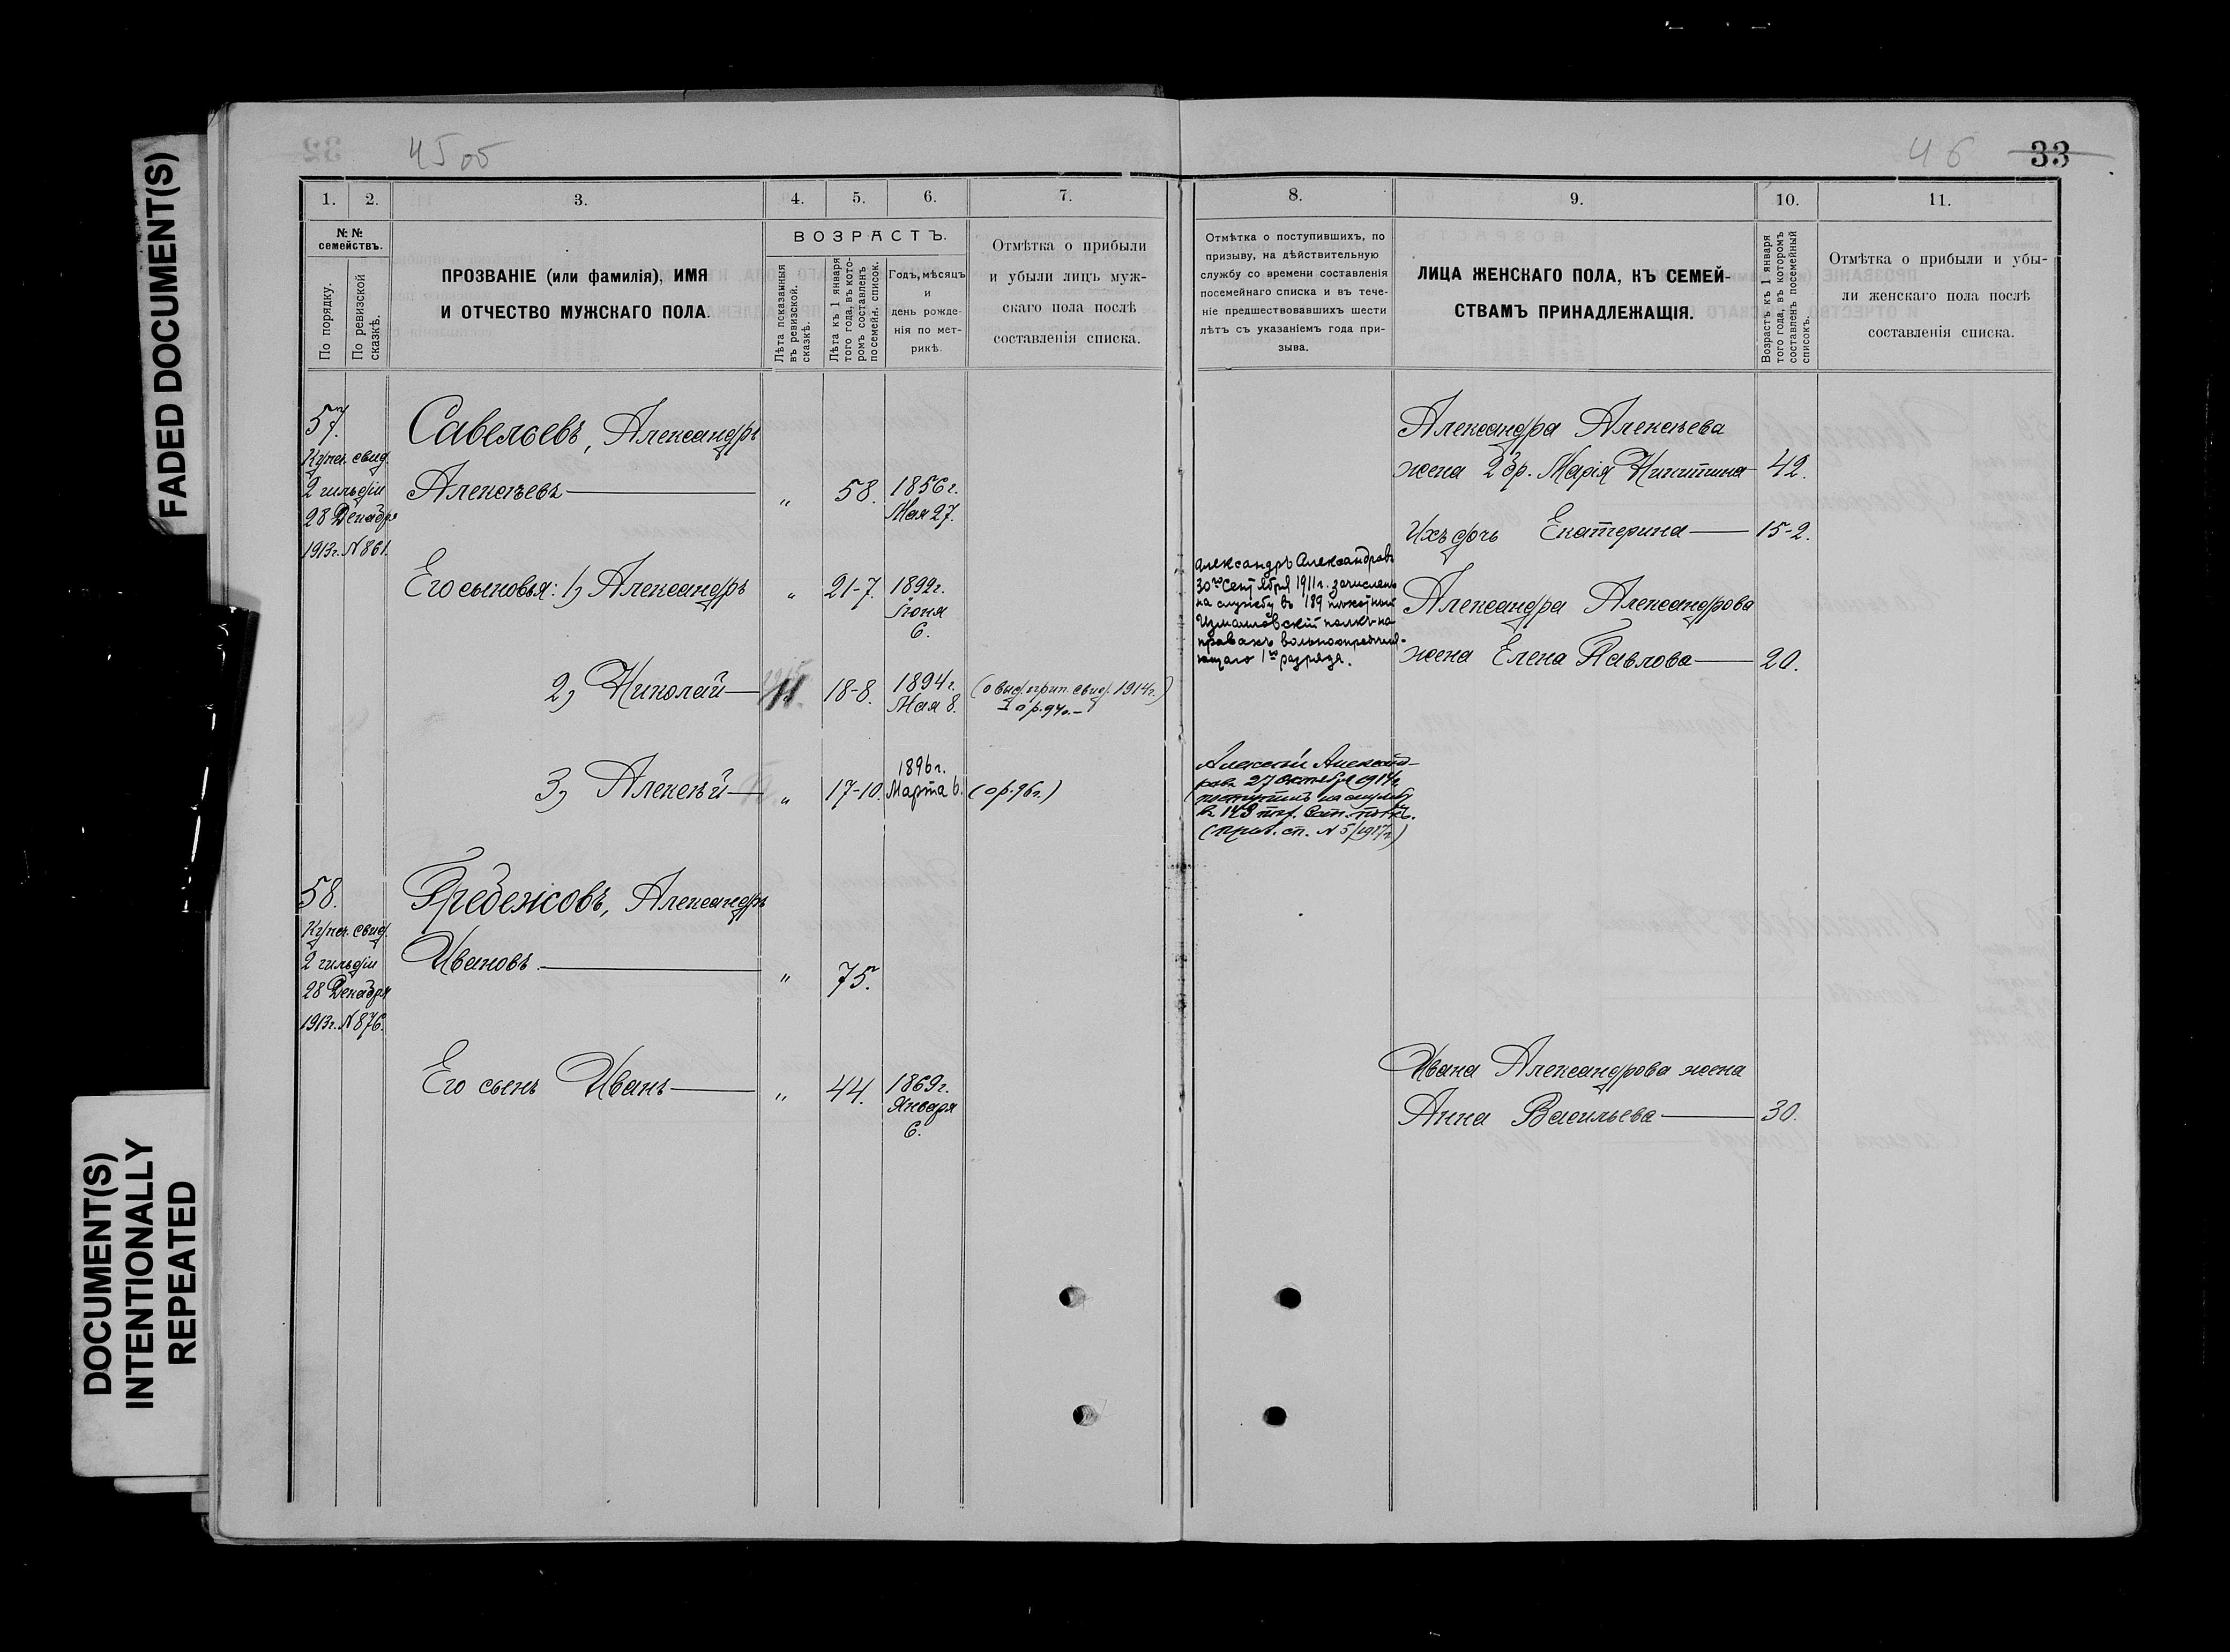 FADED DOCUMENT(S)
DOCUMENT(S)
INTENTIONALLY
REPEATED
45 об
1. 2. 3. 4. 5. 6. 7.
№ №
семействъ.
По порядку.
По ревизской
сказкѣ.
ПРОЗВАНІЕ (или фамилія), ИМЯ
И ОТЧЕСТВО МУЖСКАГО ПОЛА.
ВОЗРАСТЪ.
Лѣта показанныя
въ ревизской.
сказкѣ.
Лѣта къ 1 января
того года, въ кото-
ромъ составленъ
посемейн. список.
Годъ, мѣсяцъ
и
день рожде-
нія по мет-
рикѣ.
Отмѣтка о прибыли
и убыли лицъ муж-
скаго пола послѣ
составленія списка.
57.
Купеч. свид.
2 гильдіи
28 Декабря
1913г. № 861.
Савельевъ, Александръ
Алексѣевъ — „ 58. 1856г.
Мая 27.
Его сыновья: 1) Александръ „ 21-7. 1892г.
Іюня
6.
2) Николай — 18-8. 1894г.
Мая 8.
(о выд. прип. свид. 1914г.)
3) Алексѣй — „ 17-10. 1896г.
Марта 6. (о р. 96г.)
58.
Купеч. свид.
2 гильдіи
28 Декабря
1913г. № 876.
Гребенсовъ, Александръ
Ивановъ. — „ 75.
Его сынъ Иванъ — „ 44. 1869г.
Января
6.
46 33
8. 9. 10. 11.
Отмѣтка о поступившихъ, по
призыву, на дѣйствительную
службу со времени составленія
посемейнаго списка и въ тече-
ніе предшествовавшихъ шести
лѣтъ съ указаніемъ года при-
зыва.
ЛИЦА ЖЕНСКАГО ПОЛА, КЪ СЕМЕЙ-
СТВАМЪ ПРИНАДЛЕЖАЩІЯ.
Возрастъ къ 1 января
того года, въ которомъ
составленъ посемейный
списокъ.
Отмѣтка о прибыли и убы-
ли женскаго пола послѣ
составленія списка.
Александра Алексѣева
жена 2 бр. Марія Никитина 42.
Ихъ дочь Екатерина — 15-2.
Александръ Александровъ
30го Сентября 1911г. зачисленъ
на службу въ 189 пѣхотный
Измаиловскій полкъ на
правахъ вольноопредѣляю-
щаго 1го разряда.
Александра Александрова
жена Елена Павлова — 20.
Алексѣй Александ-
ровъ 27 октября 1914г.
поступилъ на службу
въ 148 пѣх. Касп. полкъ.
(приз. сп. № 5/1917г.)
Ивана Александрова жена
Анна Васильева — 30.